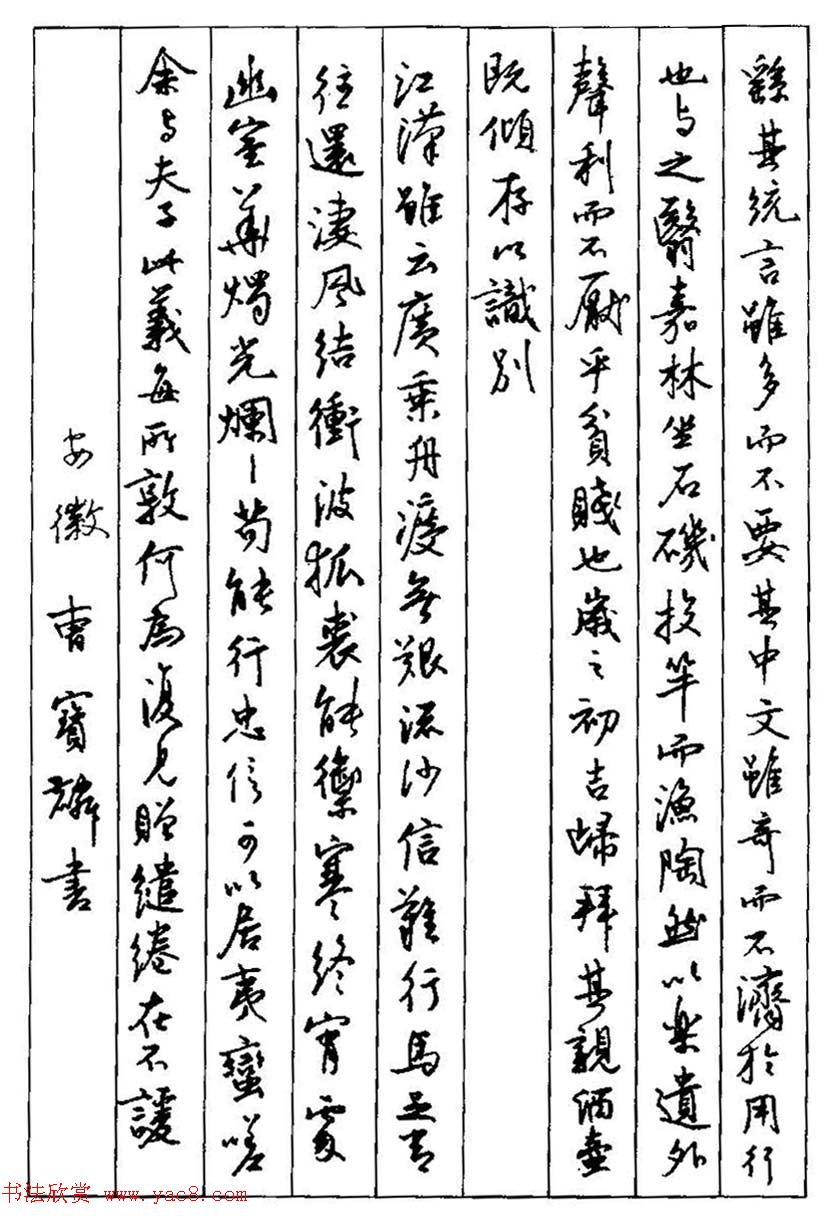 繇其統言雖多而不要其中文雖奇而不濟於用行
也与之翳嘉林坐石磯投竿而漁陶然以樂遺外
聲利而不厭乎貧賤也歲之初吉歸拜其親酒壺
既傾存以識別
江漢雖云廣乘舟渡無艱流沙信難行馬足常
往還淒風結衝波狐裘能禦寒終宵處
幽室華燭光爛々苟能行忠信可以居夷蠻嗟
余与夫子此義每所敦何為復見贈繾綣在不諼
安徽 曹寶麟書
书法欣赏 www.yac8.com